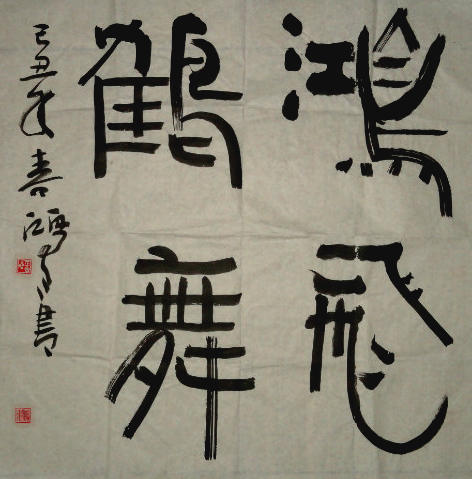 鴻飛
鶴舞
己丑年喜書